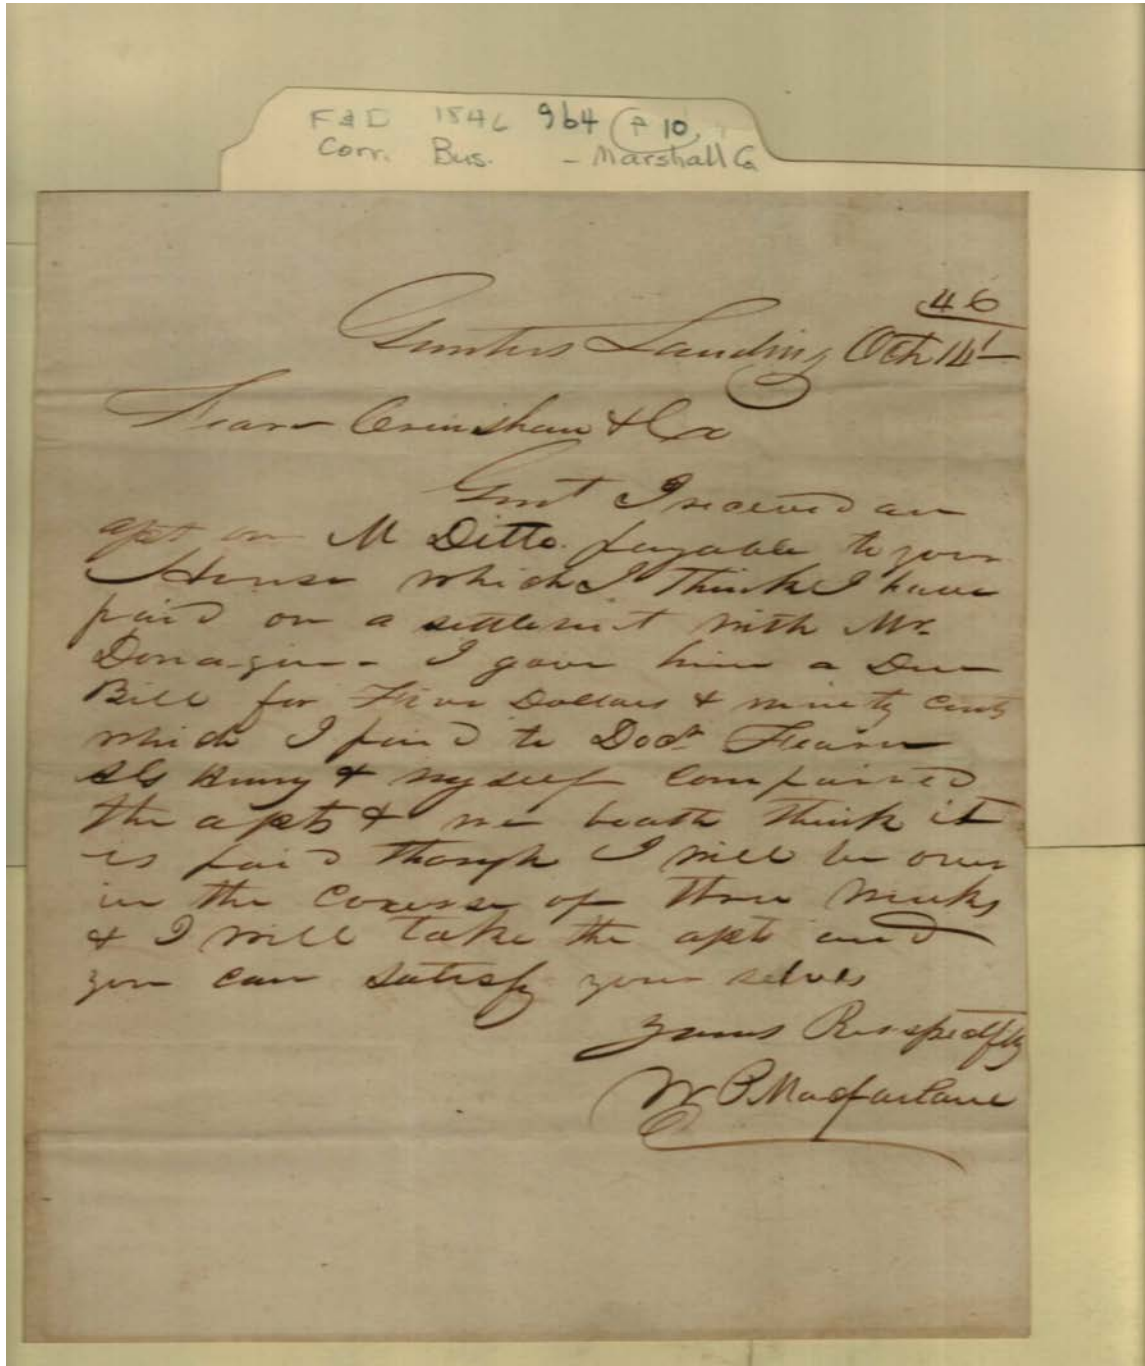 F&D 1846 964 P 10
Corr. Bus. - Marshall Co
46
Gunters Landing Oct 14t
Fearn Crinshaw & Co
Gent I receved an
apt on M Ditto payable to your
House which I think I have
paid on a settlement with Mr.
Donagin - I gave him a Due
Bill for Five Dollars & ninety Cents
which I paid to Doct Fearn
& myself Compaired
the apts & we boath think it
is paid though I will be over
in the Course of three weeks
& I will take the apt and
you can satisfy your selves
yours Respectfly
W P Macfarlane